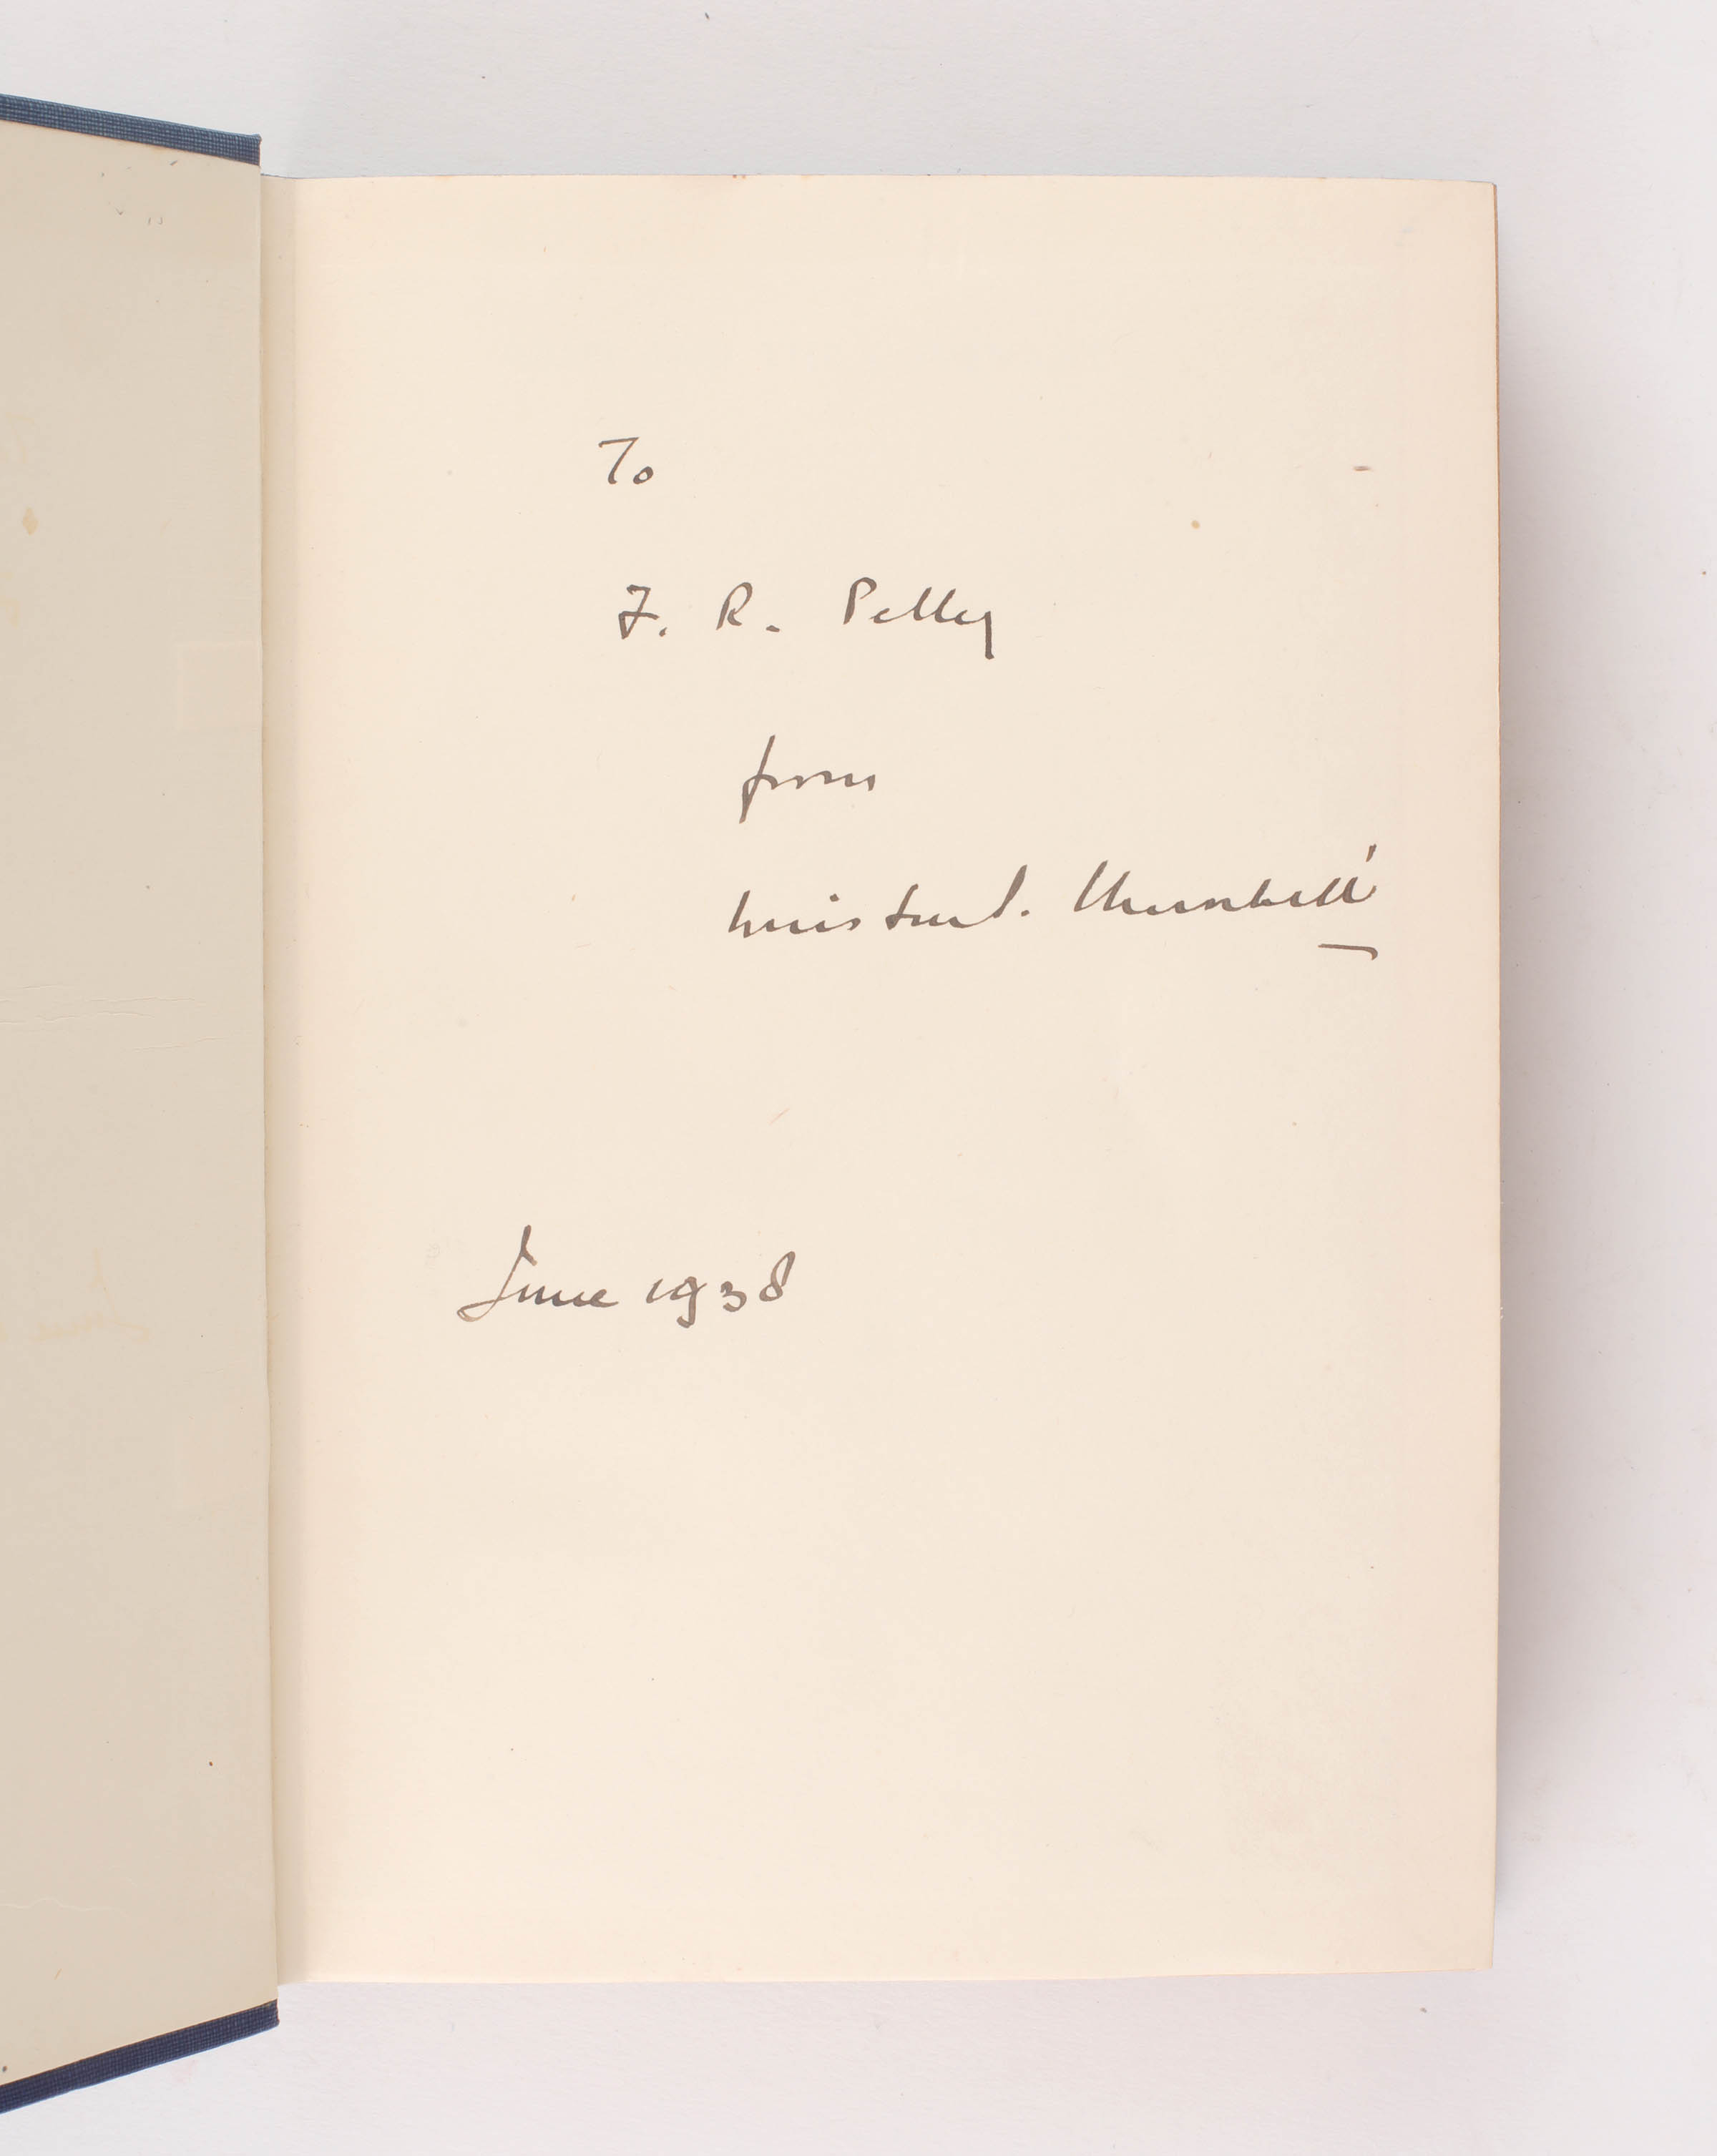 To
F. R. Pelly
from
Winston S. Churchill
June 1938